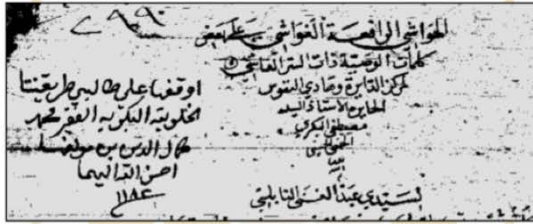 ٩٩٠
الحواشي الرافعة الغواشي على بعض
كلمات الوصية ذات السر الفاشي
لمركز الدايرة وهادي النفوس
الحايره الاستاذ السيد
مصطفى البكري
الحنفي
لسيدي عبد الغني النابلسي
اوقفها على طالبي طريقتنا
الخلوتية البكريه الفقير محمد
كمال الدين بن مولفها
احسن الله اليهما
١١٨٤